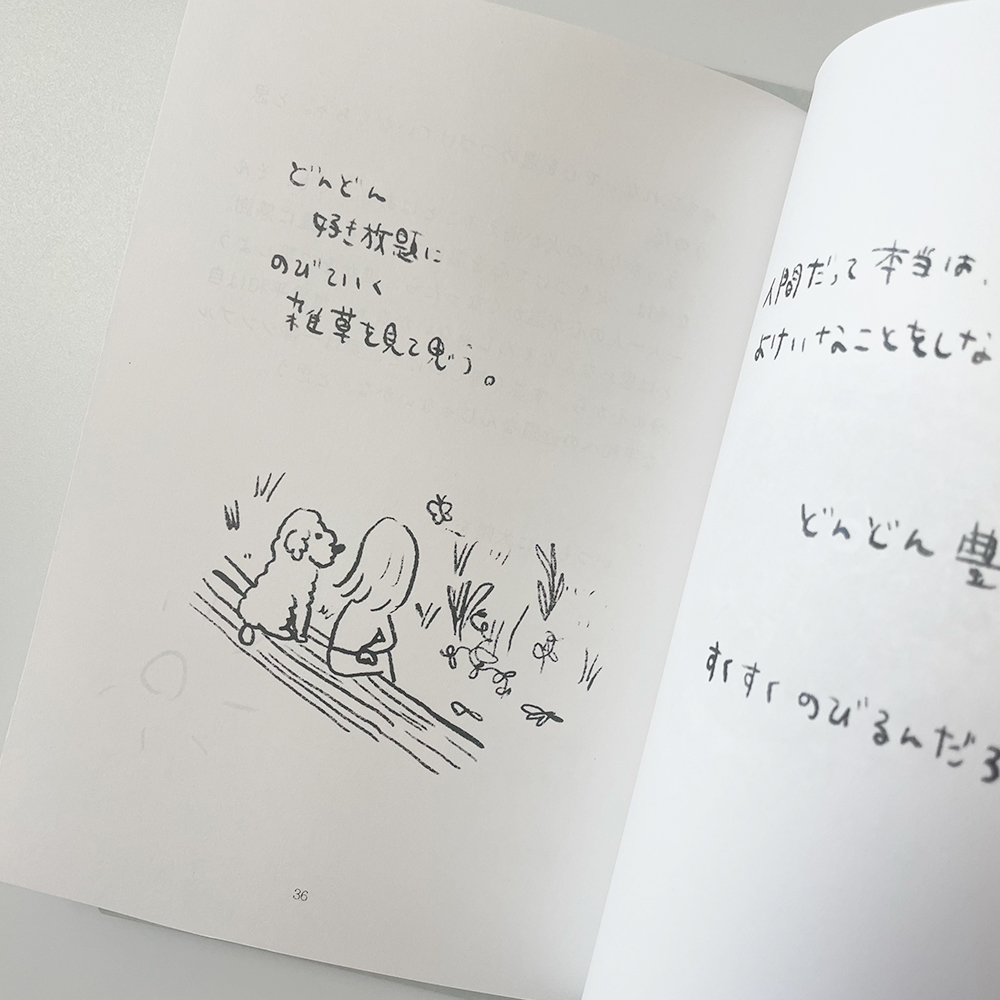 どんどん
好き放題に
のびていく
雑草を見て思う。
36
人間だって本当は、
よけいなことをしな
どんどん豊
すくすくのびるんだろ